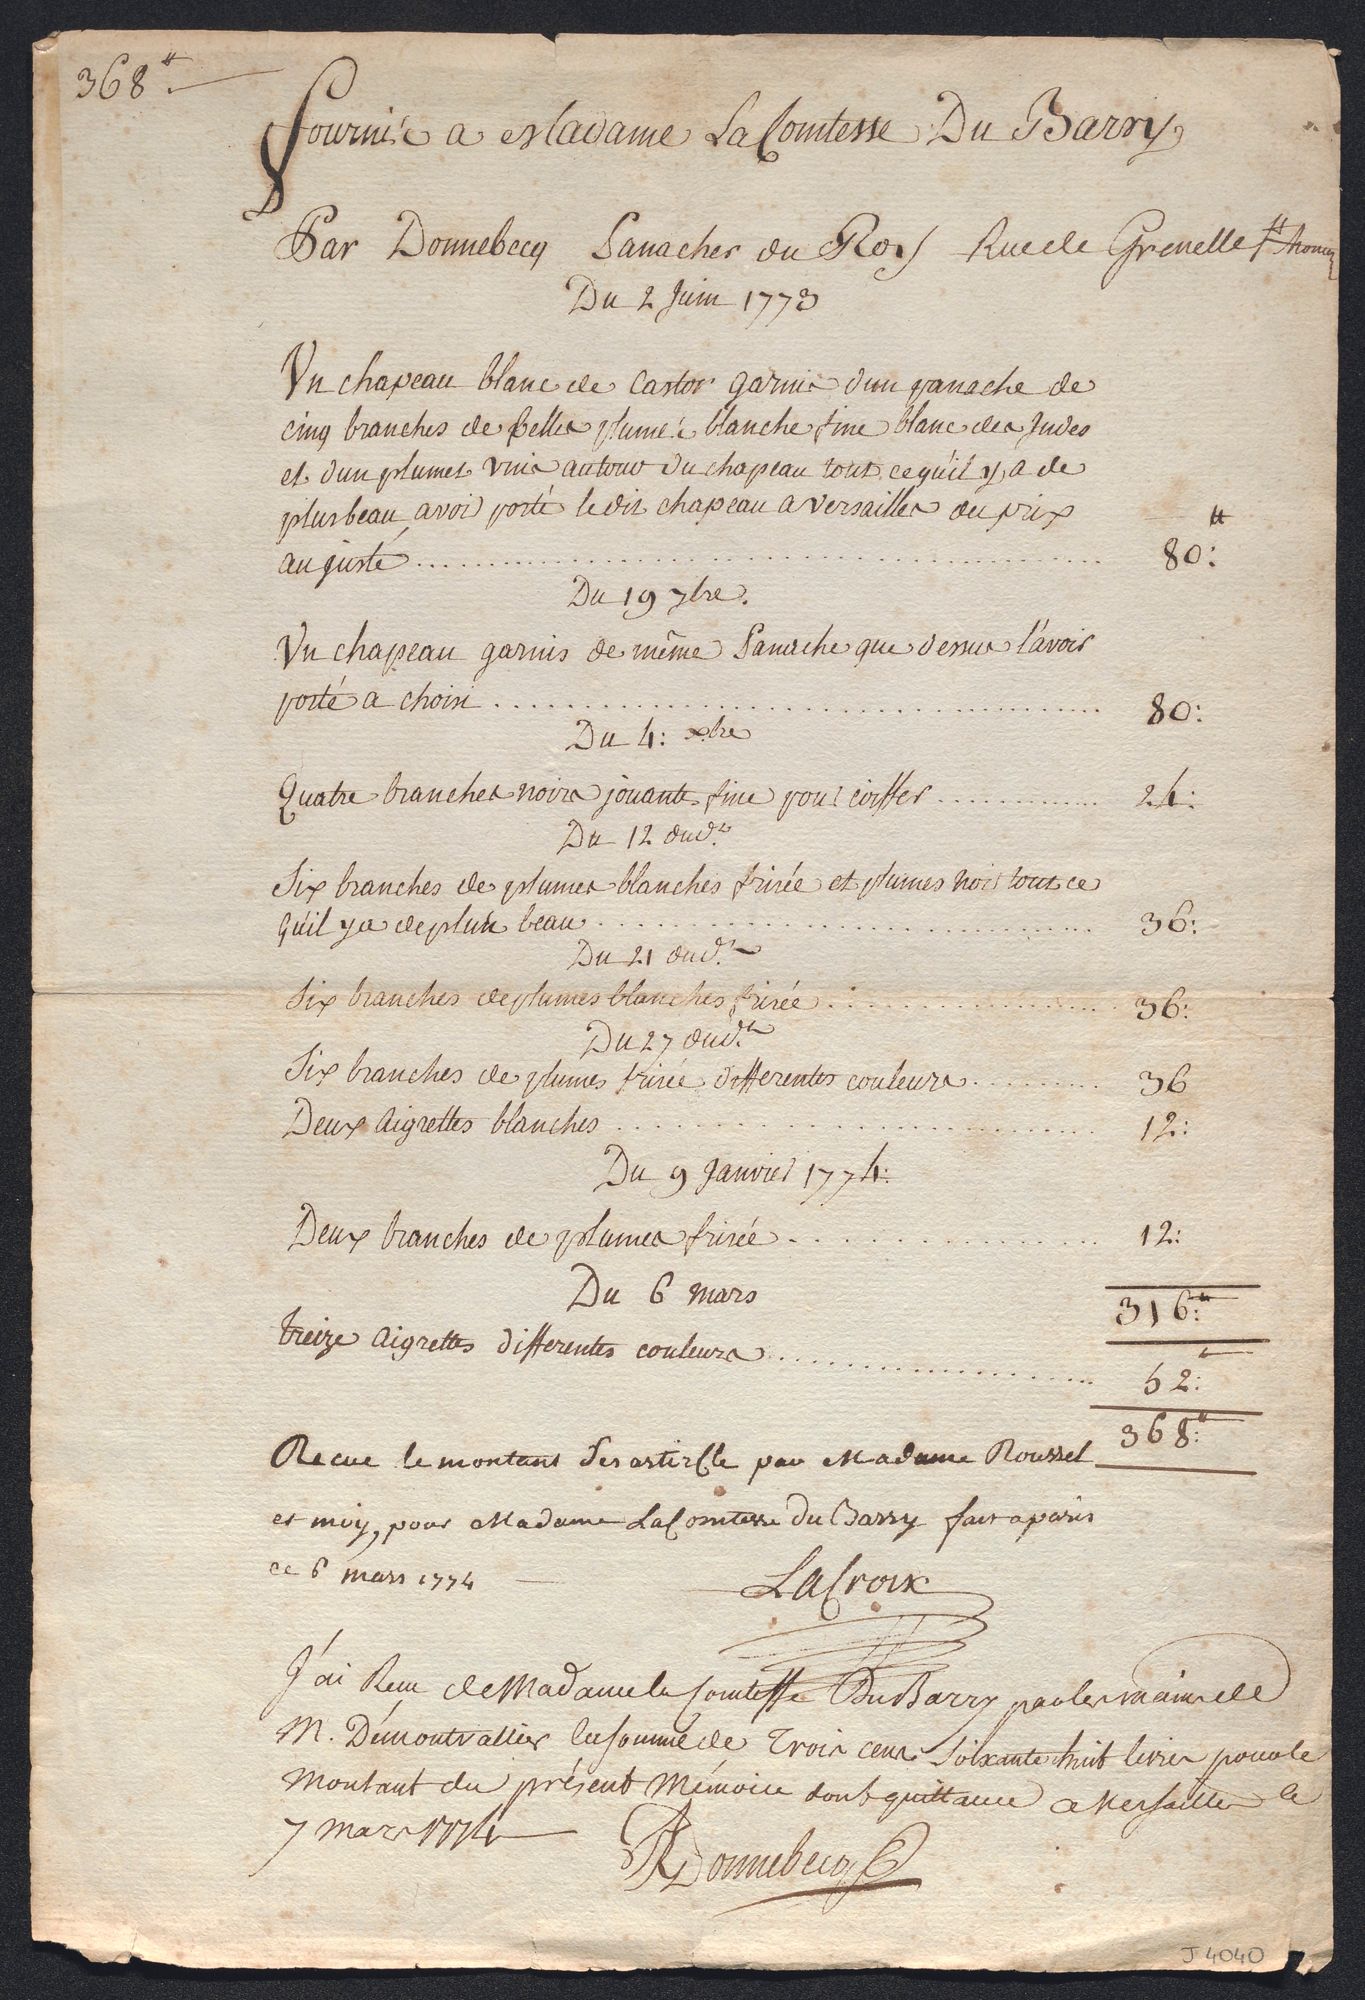 368 ₶
Fournis a Madame La Comtesse Du Barry
Par Donnebecq Panacher du Roy Rue de Grenelle St honoré
Du 2 Juin 1773
Un chapeau blanc de Castor garnis d'un panache de
cinq branches de belles plumes blanche fine blanc des Indes
et d'un plumet mis autour du chapeau tout ce qu'il y a de
plus beau avoir porté le dit chapeau a versailles du prix
au juste 80 : ₶
Du 19 7bre.
Un chapeau garnis de même Panache que dessus l'avoir
porté a choisi 80 :
Du 4 : xbre
Quatre branches noirs jouante fine pour coiffer 24 :
Du 12 dud.t
Six branches de plumes blanches frisée et plumes noir tout ce
qu'il y a de plus beau 36 :
Du 21 dud.t
Six branches de plumes blanches frisée 36 :
Du 27 dud.t
Six branches de plumes frisée differentes couleurs 36
Deux Aigrettes blanches 12 :
Du 9 Janvier 1774 :
Deux branches de plumes frisée 12 :
Du 6 mars
316 : ₶
treize Aigrettes differentes couleurs 52 : ₶
368 : ₶
Recue le montant des artickle par Madame Roussel
et moy, pour Madame La Comtesse Du Barry fait a paris
ce 6 mars 1774
LaCroix
J'ai Reçu de Madame la Comtesse Du Barry par les mains de
M. Démontvallier la somme de Trois cens Soixante huit livres pour le
montant du présent Mémoire dont quittance a Versailles le
7 mars 1774
Donnebecq
J 4040